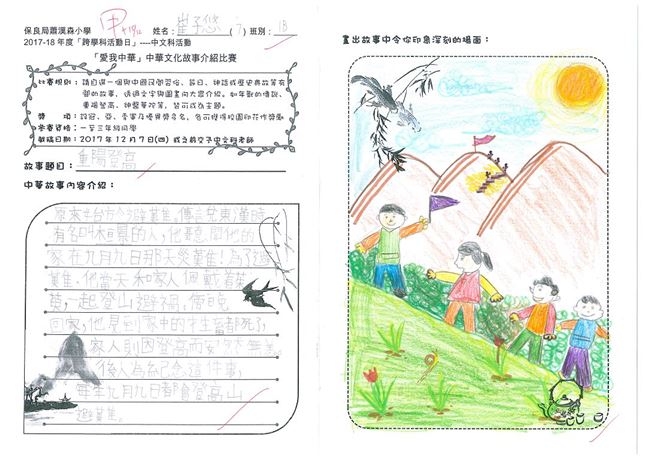 保良局蕭漢森小學 姓名：崔子悠 (7) 班別：1B
2017-18 年度「跨學科活動日」----中文科活動
「愛我中華」中華文化故事介紹比賽
比賽規則：請自選一個與中國民間習俗、節日、神話或歷史典故等有
關的故事，透過文字與圖畫向大家介紹。如年獸的傳說、
重陽登高、神醫華佗等，皆可成為主題。
獎　　項：設冠、亞、季軍及優異獎多名，各可獲得校園印花作獎勵
參賽資格：一至三年級同學
截稿日期：2017 年 12 月 7 日(四) 或之前交予中文科老師
故事題目：重陽登高
中華故事內容介紹：
有名叫桓景的人，他聽聞他的
家在九月九日那天災難！為了避
難，他當天和家人佩戴茱
萸，一起登山避禍，傍晚
回家，他見到家中的牲畜都死了，
家人則因登高而安然無恙。
後人為紀念這件事，
每年九月九日都會登高山
避難。
畫出故事中令你印象深刻的場面：